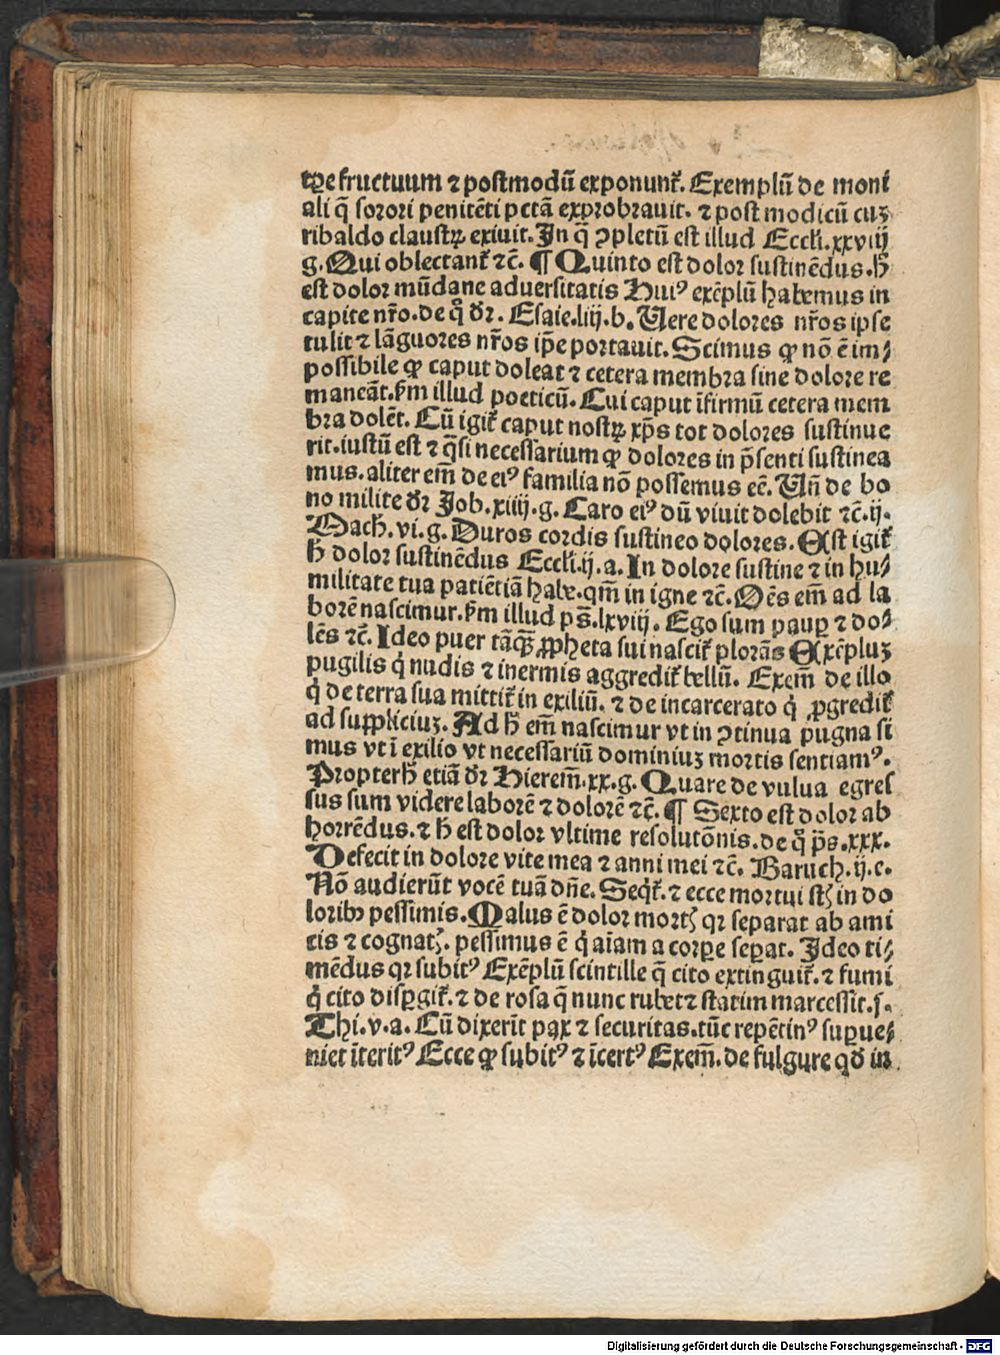 tꝑe fructuum ⁊ postmodū exponunt᷑. Exemplū de moni
ali q̄ sorori penitēti pctā exprobrauit. ⁊ post modicū cuꝫ
ribaldo claustrꝝ exiuit. In q̄ ꝯpletū est illud Eccl'i. xxviij
g. Qui oblectant᷑ ⁊c̄. ¶ Quinto est dolor sustinēdus. h̄
est dolor mūdane aduersitatis Hui⁹ exēplū habemus in
capite nr̄o. de q̊ dr̄. Esaie. liij. b. Uere dolores nr̄os ipse
tulit ⁊ lāguores nr̄os ip̄e portauit. Scimus ꝙ nō ē im⸗
possibile ꝙ caput doleat ⁊ cetera membra sine dolore re
maneāt. ẜm illud poeticū. Cui caput īfirmū cetera mem
bra dolēt. Cū igit᷑ caput nostrꝝ xp̄s tot dolores sustinue
rit. iustū est ⁊ q̄si necessarium ꝙ dolores in p̄senti sustinea
mus. aliter em̄ de ei⁹ familia nō possemus eē. Un̄ de bo
no milite dr̄ Job. xiiij. g. Caro ei⁹ dū viuit dolebit ⁊c̄. ij.
Mach. vi. g. Duros cordis sustineo dolores. Est igit᷑
h̄ dolor sustinēdus Eccl'i. ij. a. In dolore sustine ⁊ in hu⸗
militate tua patiētiā habe. qm̄ in igne ⁊c̄. Oēs em̄ ad la
borē nascimur. ẜm illud ps̄. lxviij. Ego sum paupꝑ ⁊ do⸗
lēs ⁊c̄. Ideo puer tāqꝫ ꝓpheta sui nascit᷑ plorās Exēpluꝫ
pugilis q̇ nudis ⁊ inermis aggredit᷑ bellū. Exem̄ de illo
q̇ de terra sua mittit᷑ in exiliū. ⁊ de incarcerato q̇ ꝓgredit᷑
ad suppliciuꝫ. Ad h̄ em̄ nascimur vt in ꝯtinua pugna si
mus vt ī exilio vt necessariū dominiuꝫ mortis sentiam⁹.
Propterh̄ etiā dr̄ Hierem̄. xx. g. Quare de vulua egres
sus sum videre laborē ⁊ dolorē ⁊c̄. ¶ Sexto est dolor ab
horrēdus. ⁊ h̄ est dolor vltime resolutōnis. de q̊ p̄s. xxx.
Defecit in dolore vite mea ⁊ anni mei ⁊c̄. Baruch. ij. c.
Nō audierūt vocē tuā dn̄e. Seq̇t᷑. ⁊ ecce mortui st̄ in do
loribꝰ pessimis. Malus ē dolor mortꝭ qr separat ab ami
cis ⁊ cognatꝭ. pessimus ē q̇ aīam a corpe seꝑat. Ideo ti⸗
mēdus qr subit⁹ Exēplū scintille q̄ cito extinguit᷑. ⁊ fumi
q̇ cito disꝑgit᷑. ⁊ de rosa q̄ nunc rubet ⁊ statim marcessit. j.
Thi. v. a. Cū dixerīt pax ⁊ securitas. tūc repētin⁹ suꝑue⸗
niet īterit⁹ Ecce ꝙ subit⁹ ⁊ īcert⁹ Exem̄. de fulgure qd̄ in
Digitalisierung gefördert durch die Deutsche Forschungsgemeinschaft - DFG